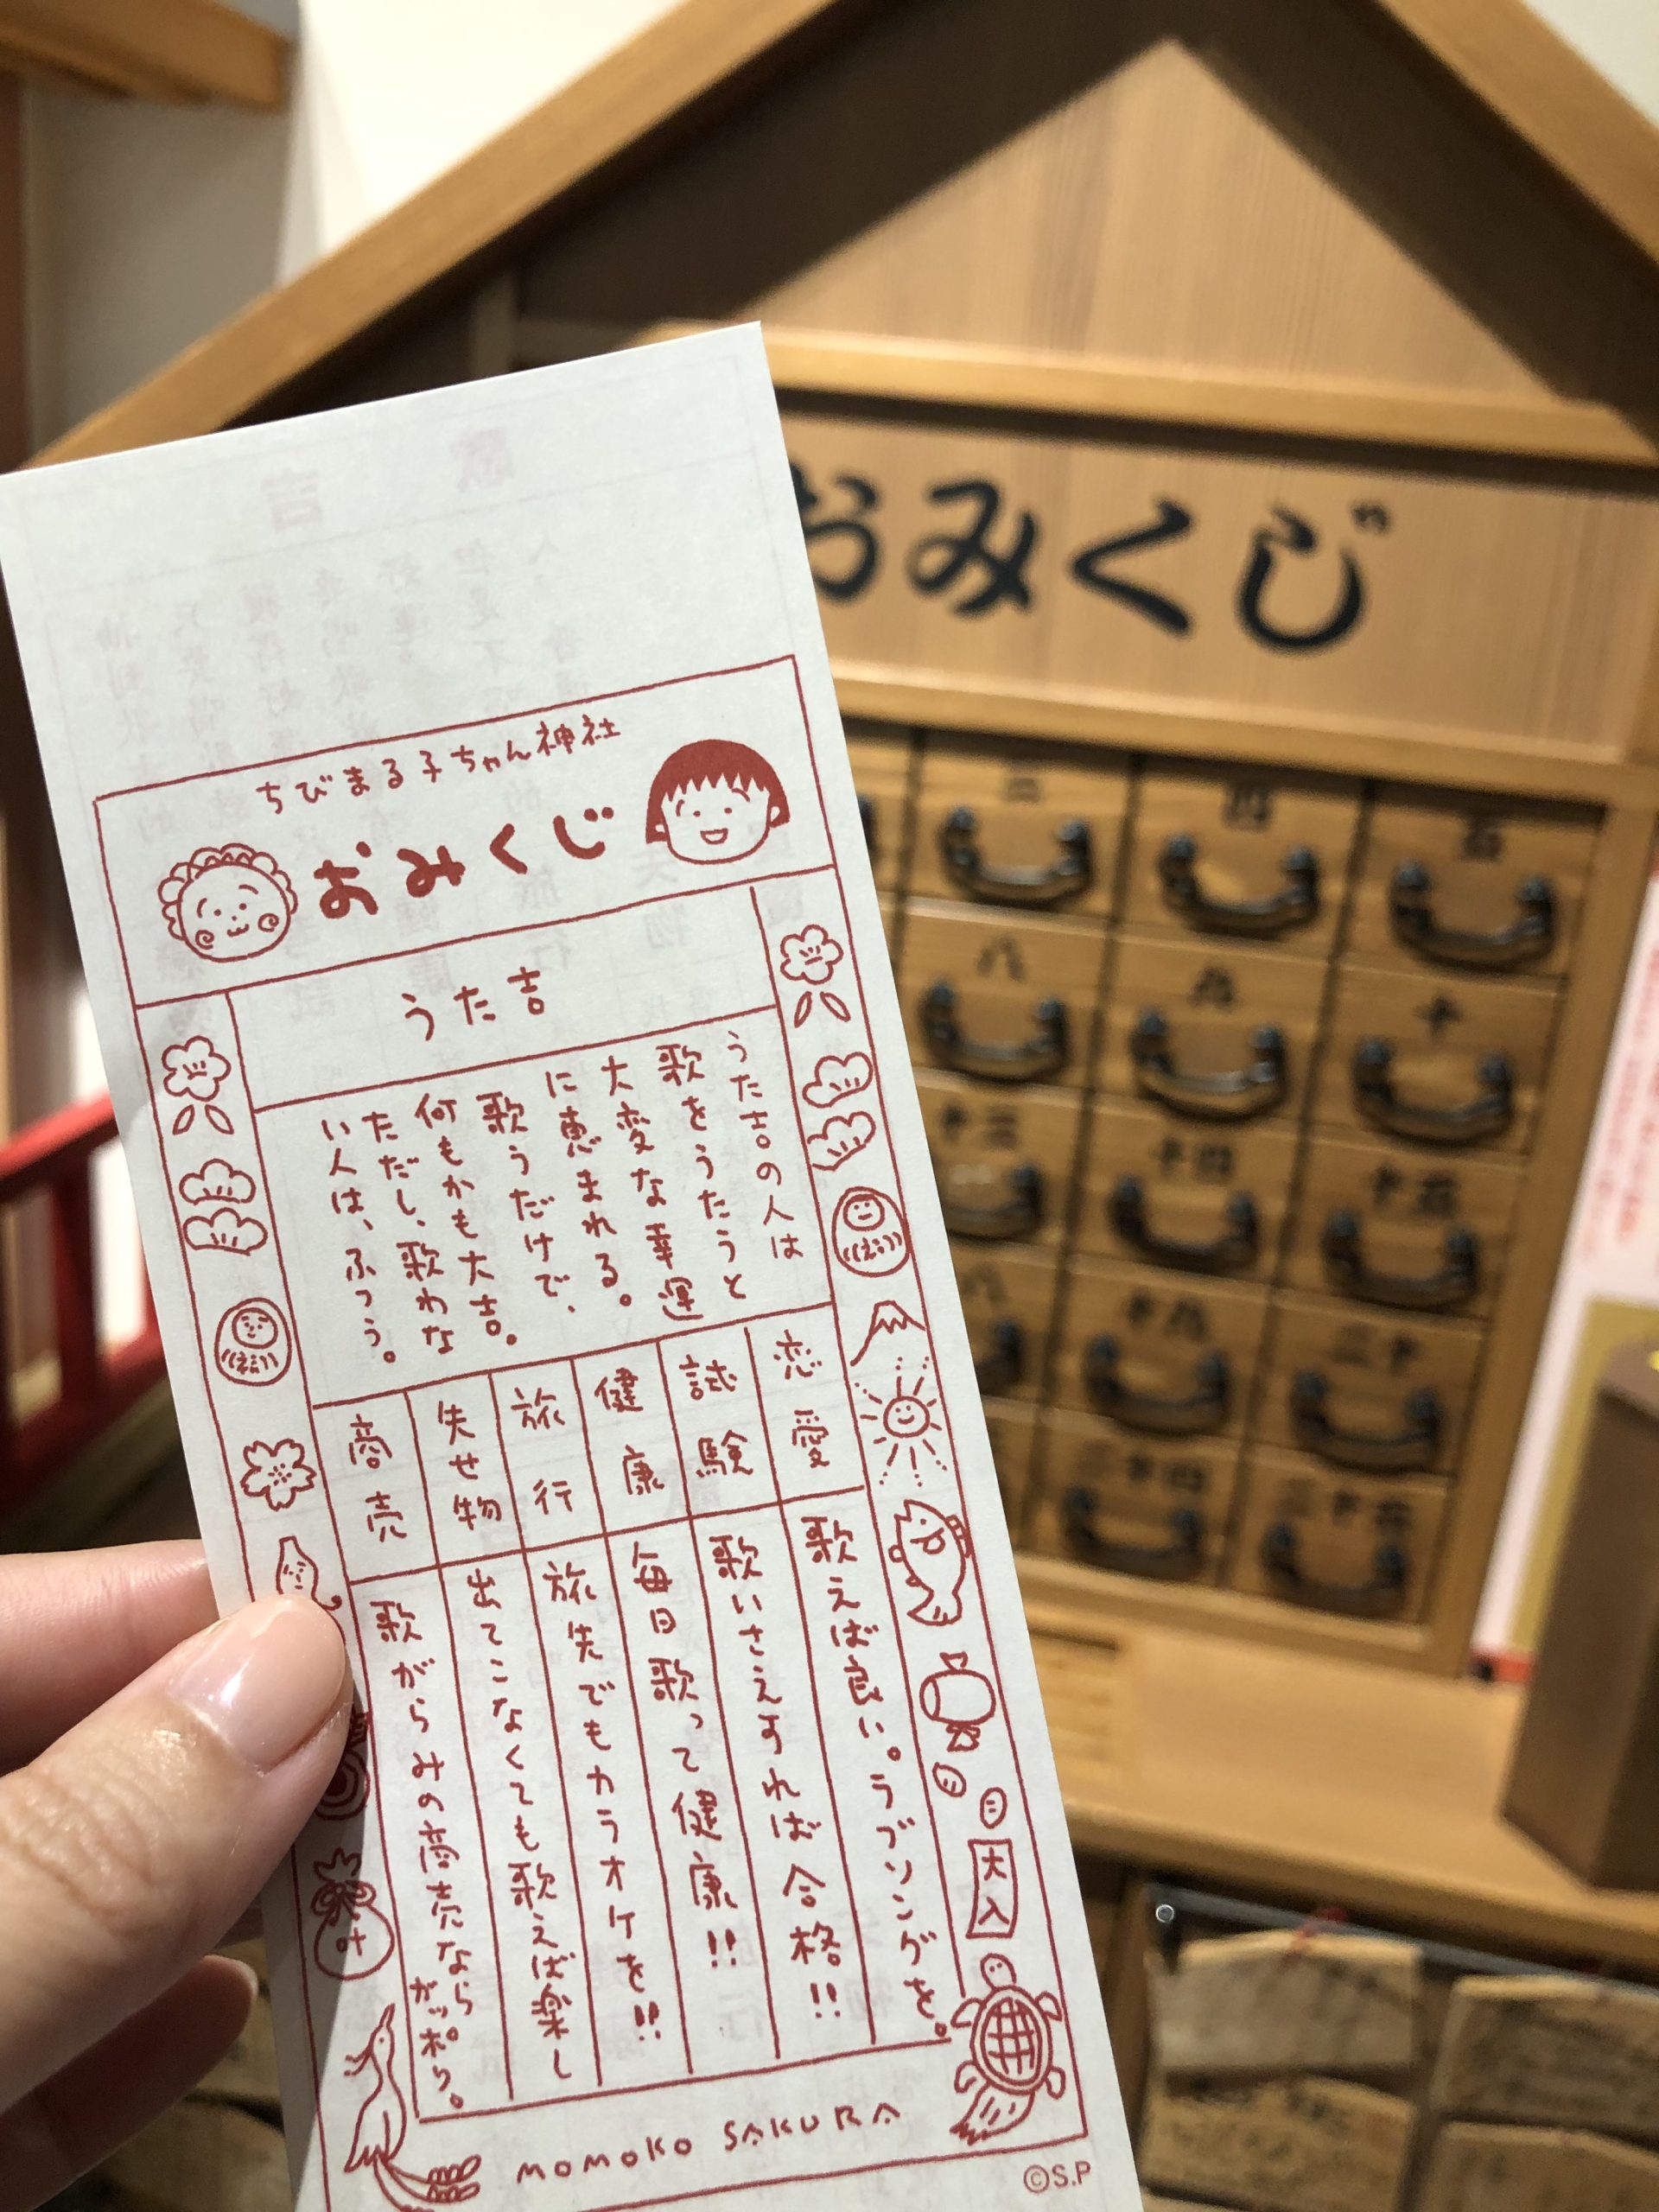 おみくじ
ちびまる子ちゃん神社
おみくじ
うた吉
うた吉の人は
歌をうたうと
大変な幸運
に恵まれる。
歌うだけで、
何もかも大吉。
ただし、歌わな
い人は、ふつう。
恋愛
歌えば良い。ラブソングを。
試験
歌いさえすれば合格!!
健康
毎日歌って健康!!
旅行
旅先でもカラオケを!!
失せ物
出てこなくても歌えば楽し
商売
歌がらみの商売なら
がッポリ。
大入
叶
MOMOKO SAKURA
©S.P
三
四
五
八
九
十
十三
十四
十五
八
十九
二十
十四